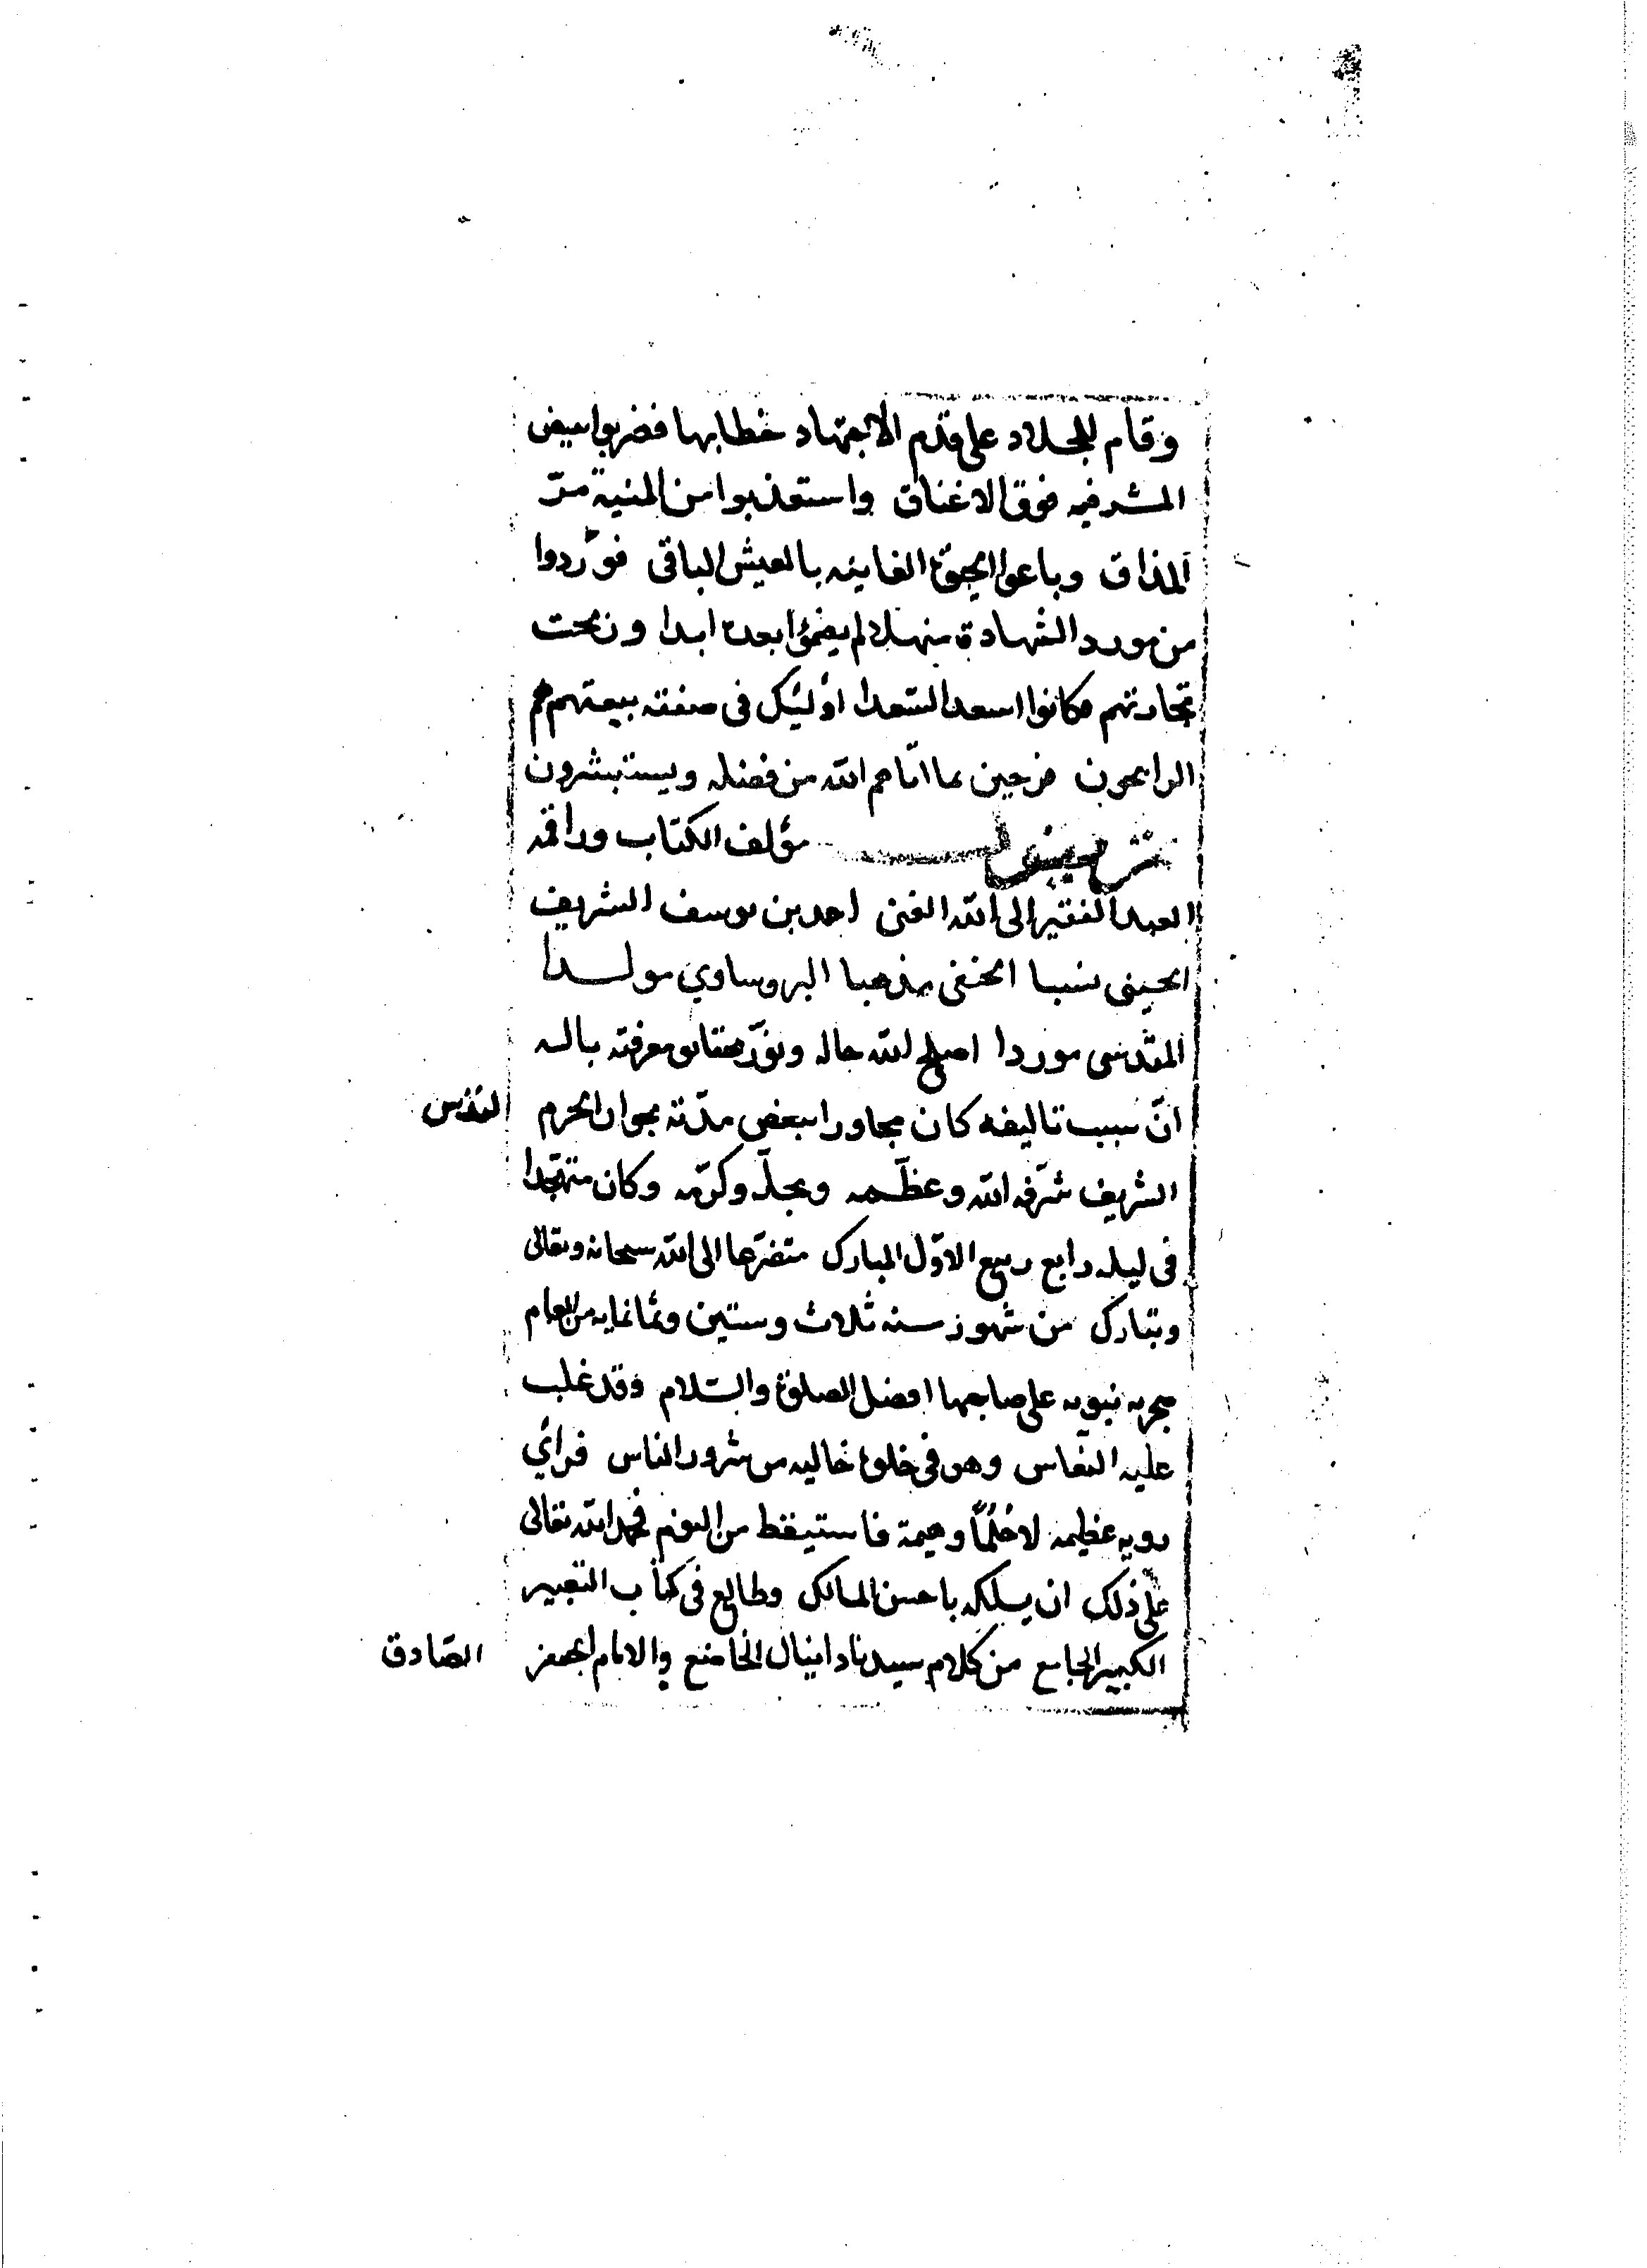 وقام للجلاد على قدم الاجتهاد خطابها فضربوا ببيض
المشرفيه فوق الاعناق واستعذبوا من المنية مرّ
المذاق وباعوا الحيوة الفانيه بالعيش الباقى فورّدوا
من مورد الشهادة منهلا لم يضمؤا بعده ابدا وربحت
تجارتهم فكانوا اسعد السّعدا اولئك فى صفقة بيعتهم هم
الرابحون فرحين بما اتاهم الله من فضله ويستبشرون
ثم يقول مؤلف الكتاب وراقمه
العبد الفقير الى الله الغنى احمد بن يوسف الشريف
الحسينى نسبا الحنفى مذهبا البروساوي مولدا
المقدسى موردا اصلح الله حاله ونوّر معرفته باله
انّ سبب تاليفه كان مجاورا ببعض مدّته بجوار الحرم القدس
الشريف شرّفه الله وعظّمه وبجلّه وكرّمه وكان متهجّدا
فى ليله رابع ربيع الاوّل المبارك متضرّعا الى الله سبحانه وتعالى
وتبارك من شهور سنه ثلاث وستين وثمانمايه من العام
هجريه نبويه على صاحبها افضل الصلوة والسّلام وقد غلب
عليه النعاس وهو فى خلوة خاليه من شرور الناس فرأي
رويه عظيمه لا حُلُمًا وهيمة فاستيقظ من النوم فحمد الله تعالى
على ذلك ان يسلكه باحسن المسالك وطالع فى كتاب التعبير
الكبير الجامع من كلام سيدنا دانيال الخاضع والامام الجعفر الصّادق